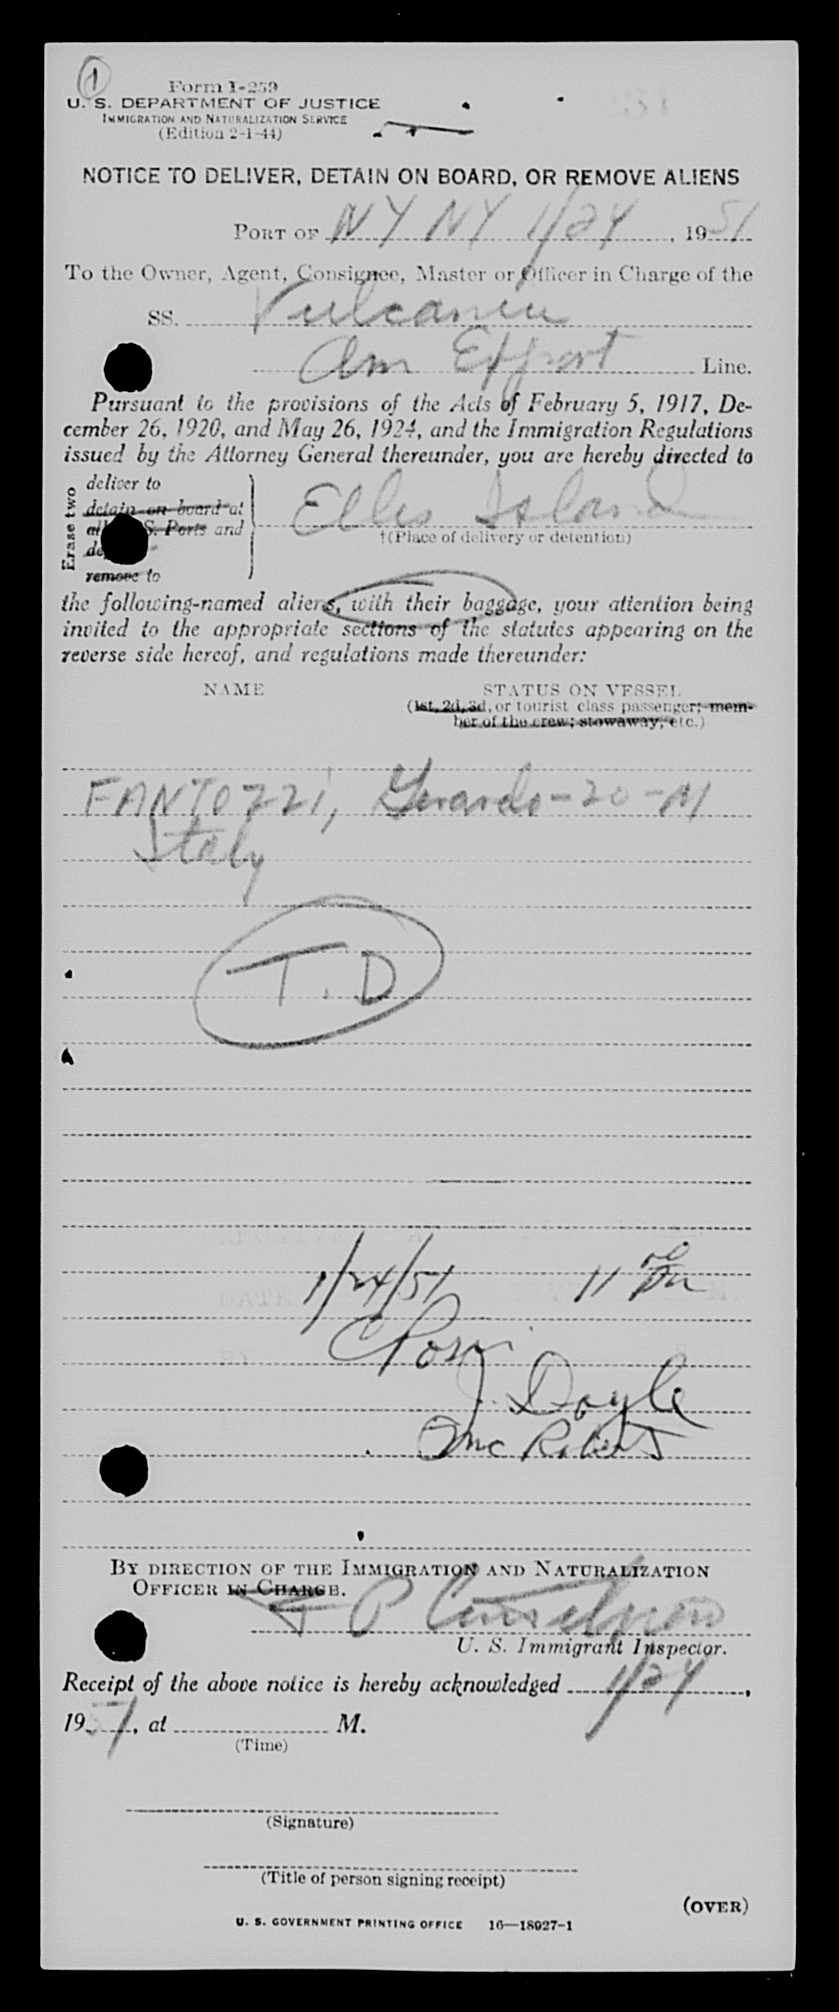 1
Form I-259
U. S. DEPARTMENT OF JUSTICE
IMMIGRATION AND NATURALIZATION SERVICE
(Edition 2-1-44)
NOTICE TO DELIVER, DETAIN ON BOARD, OR REMOVE ALIENS
PORT OF NY NY 1/24, 1951
To the Owner, Agent, Consignee, Master or Officer in Charge of the
SS. Vulcania
Am Export Line.
Pursuant to the provisions of the Acts of February 5, 1917, De-
cember 26, 1920, and May 26, 1924, and the Immigration Regulations
issued by the Attorney General thereunder, you are hereby directed to
Erase two
deliver to
detain on board at
S. Ports and
remove to
Ellis Island
†(Place of delivery or detention)
the following-named aliens, with their baggage, your attention being
invited to the appropriate sections of the statutes appearing on the
reverse side hereof, and regulations made thereunder:
NAME STATUS ON VESSEL
(1st, 2d, 3d, or tourist class passenger; mem-
ber of the crew; stowaway, etc.)
FANTOZZI, Gerardo-20-M
Italy
T.D
1/24/51 11
J. Doyle
McRoberts
BY DIRECTION OF THE IMMIGRATION AND NATURALIZATION
OFFICER IN CHARGE.
U. S. Immigrant Inspector.
Receipt of the above notice is hereby acknowledged 1/24,
1951, at M.
(Time)
(Signature)
(Title of person signing receipt)
(OVER)
U. S. GOVERNMENT PRINTING OFFICE 16—18027-1